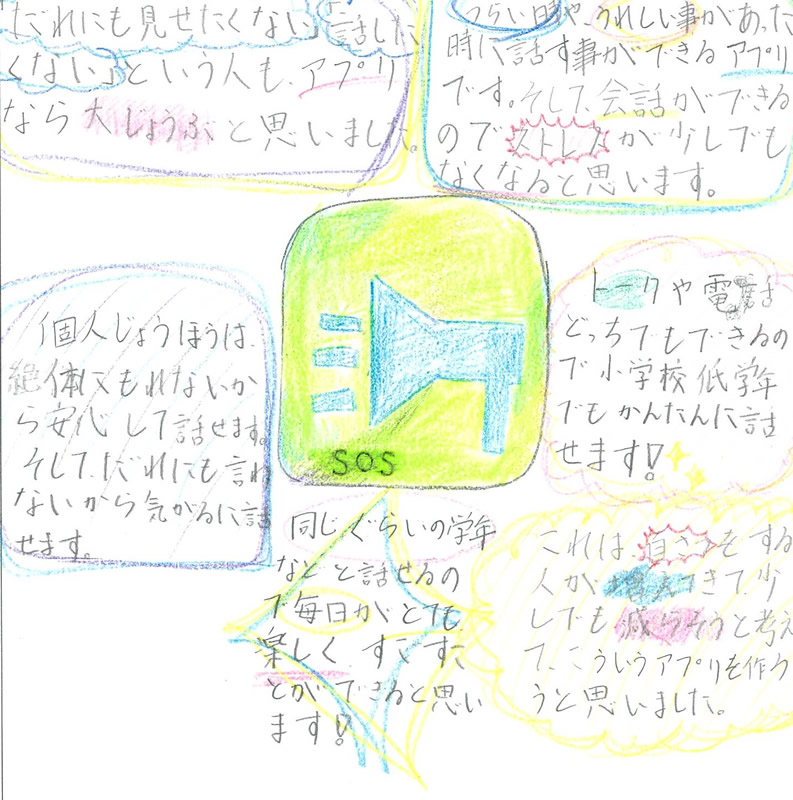 「だれにも見せたくない」「話した
くない」という人も、アプリ
なら大じょうぶと思いました。
つらい時や、うれしい事があった
時に話す事ができるアプリ
です。そして、会話ができる
のでストレスが少しでも
なくなると思います。
個人じょうほうは、
絶体にもれないか
ら安心して話せます。
そして、だれにも言わ
ないから気がるに話
せます。
SOS
トークや電話
どっちでもできるの
で小学校低学年
でもかんたんに話
せます!
同じぐらいの学年
などと話せるの
で毎日がとても
楽しく、すごすこ
とができると思い
ます!
これは、自さつをする
人が増えてきて、少
しでも減らそうと考え
て、こういうアプリを作ろ
うと思いました。